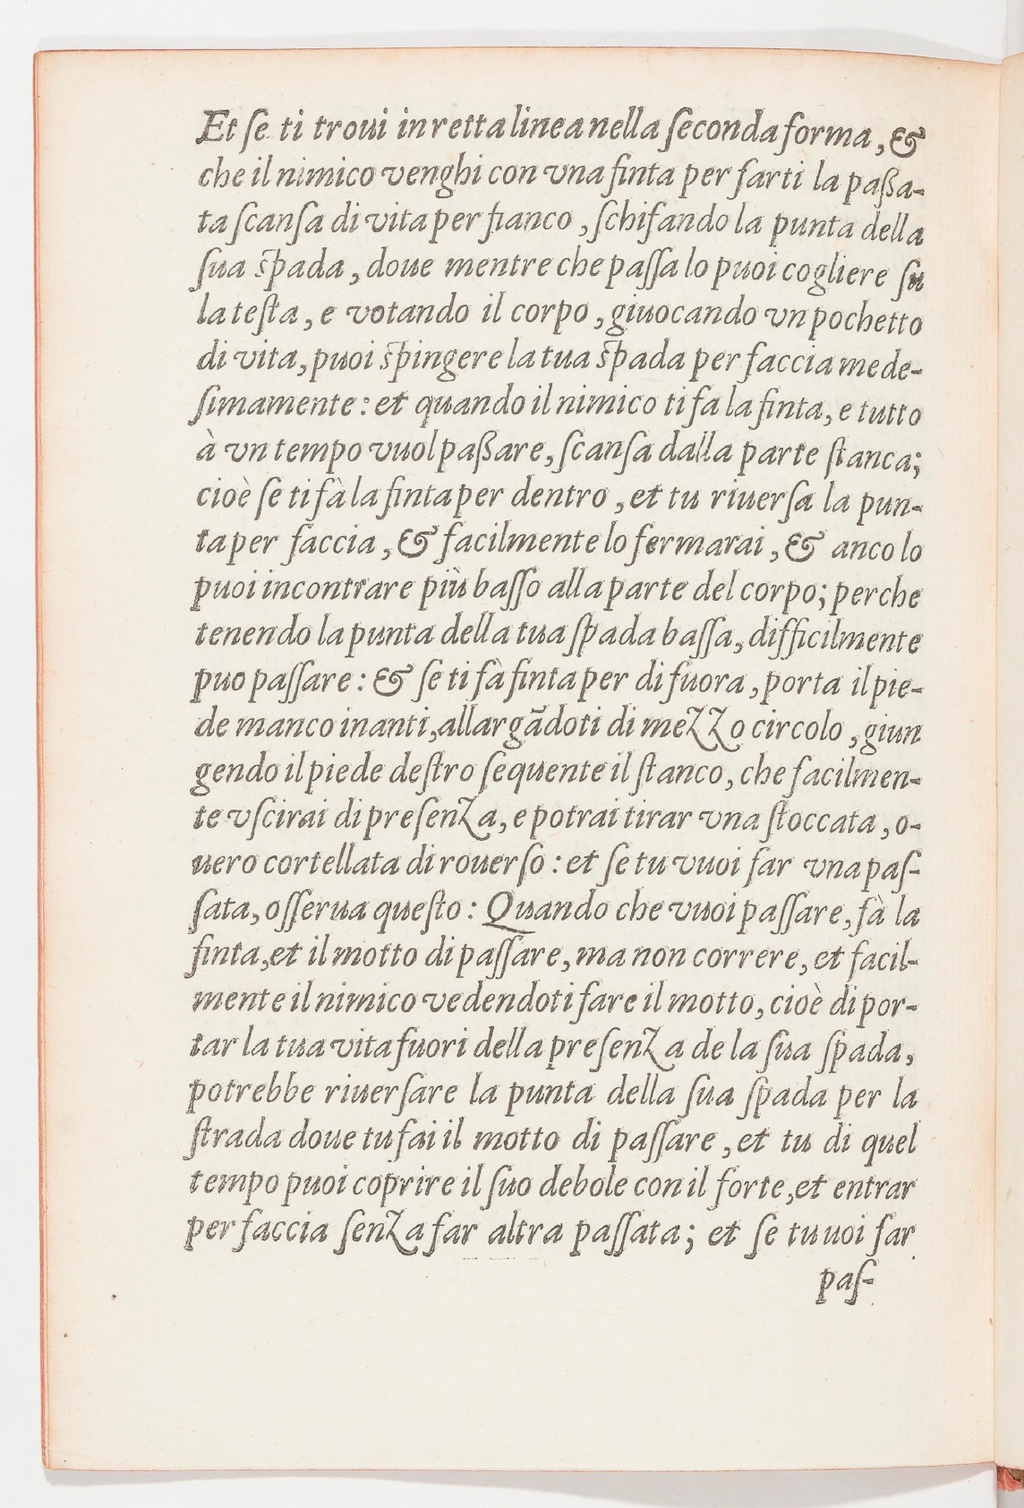 Et ſe ti troui in retta linea nella ſeconda forma, &
che il nimico venghi con vna finta per farti la paßa-
ta ſcanſa di vita per fianco, ſchifando la punta della
ſua ſpada, doue mentre che paſſa lo puoi cogliere ſu
la teſta, e votando il corpo, giuocando vn pochetto
di vita, puoi ſpingere la tua ſpada per faccia mede-
ſimamente: et quando il nimico ti fa la finta, e tutto
à vn tempo vuol paßare, ſcanſa dalla parte ſtanca;
cioè ſe ti fà la finta per dentro, et tu riuerſa la pun-
ta per faccia, & facilmente lo fermarai, & anco lo
puoi incontrare più baſſo alla parte del corpo; perche
tenendo la punta della tua ſpada baſſa, difficilmente
puo paſſare: & ſe ti fà finta per di fuora, porta il pie-
de manco inanti, allargãdoti di mezzo circolo, giun
gendo il piede deſtro ſequente il ſtanco, che facilmen-
te vſcirai di preſenza, e potrai tirar vna ſtoccata, o-
uero cortellata di rouerſo: et ſe tu vuoi far vna paſ-
ſata, oſſerua queſto: Quando che vuoi paſſare, fà la
finta, et il motto di paſſare, ma non correre, et facil-
mente il nimico vedendoti fare il motto, cioè di por-
tar la tua vita fuori della preſenza de la ſua ſpada,
potrebbe riuerſare la punta della ſua ſpada per la
ſtrada doue tu fai il motto di paſſare, et tu di quel
tempo puoi coprire il ſuo debole con il forte, et entrar
per faccia ſenza far altra paſſata; et ſe tu uoi far
paſ-